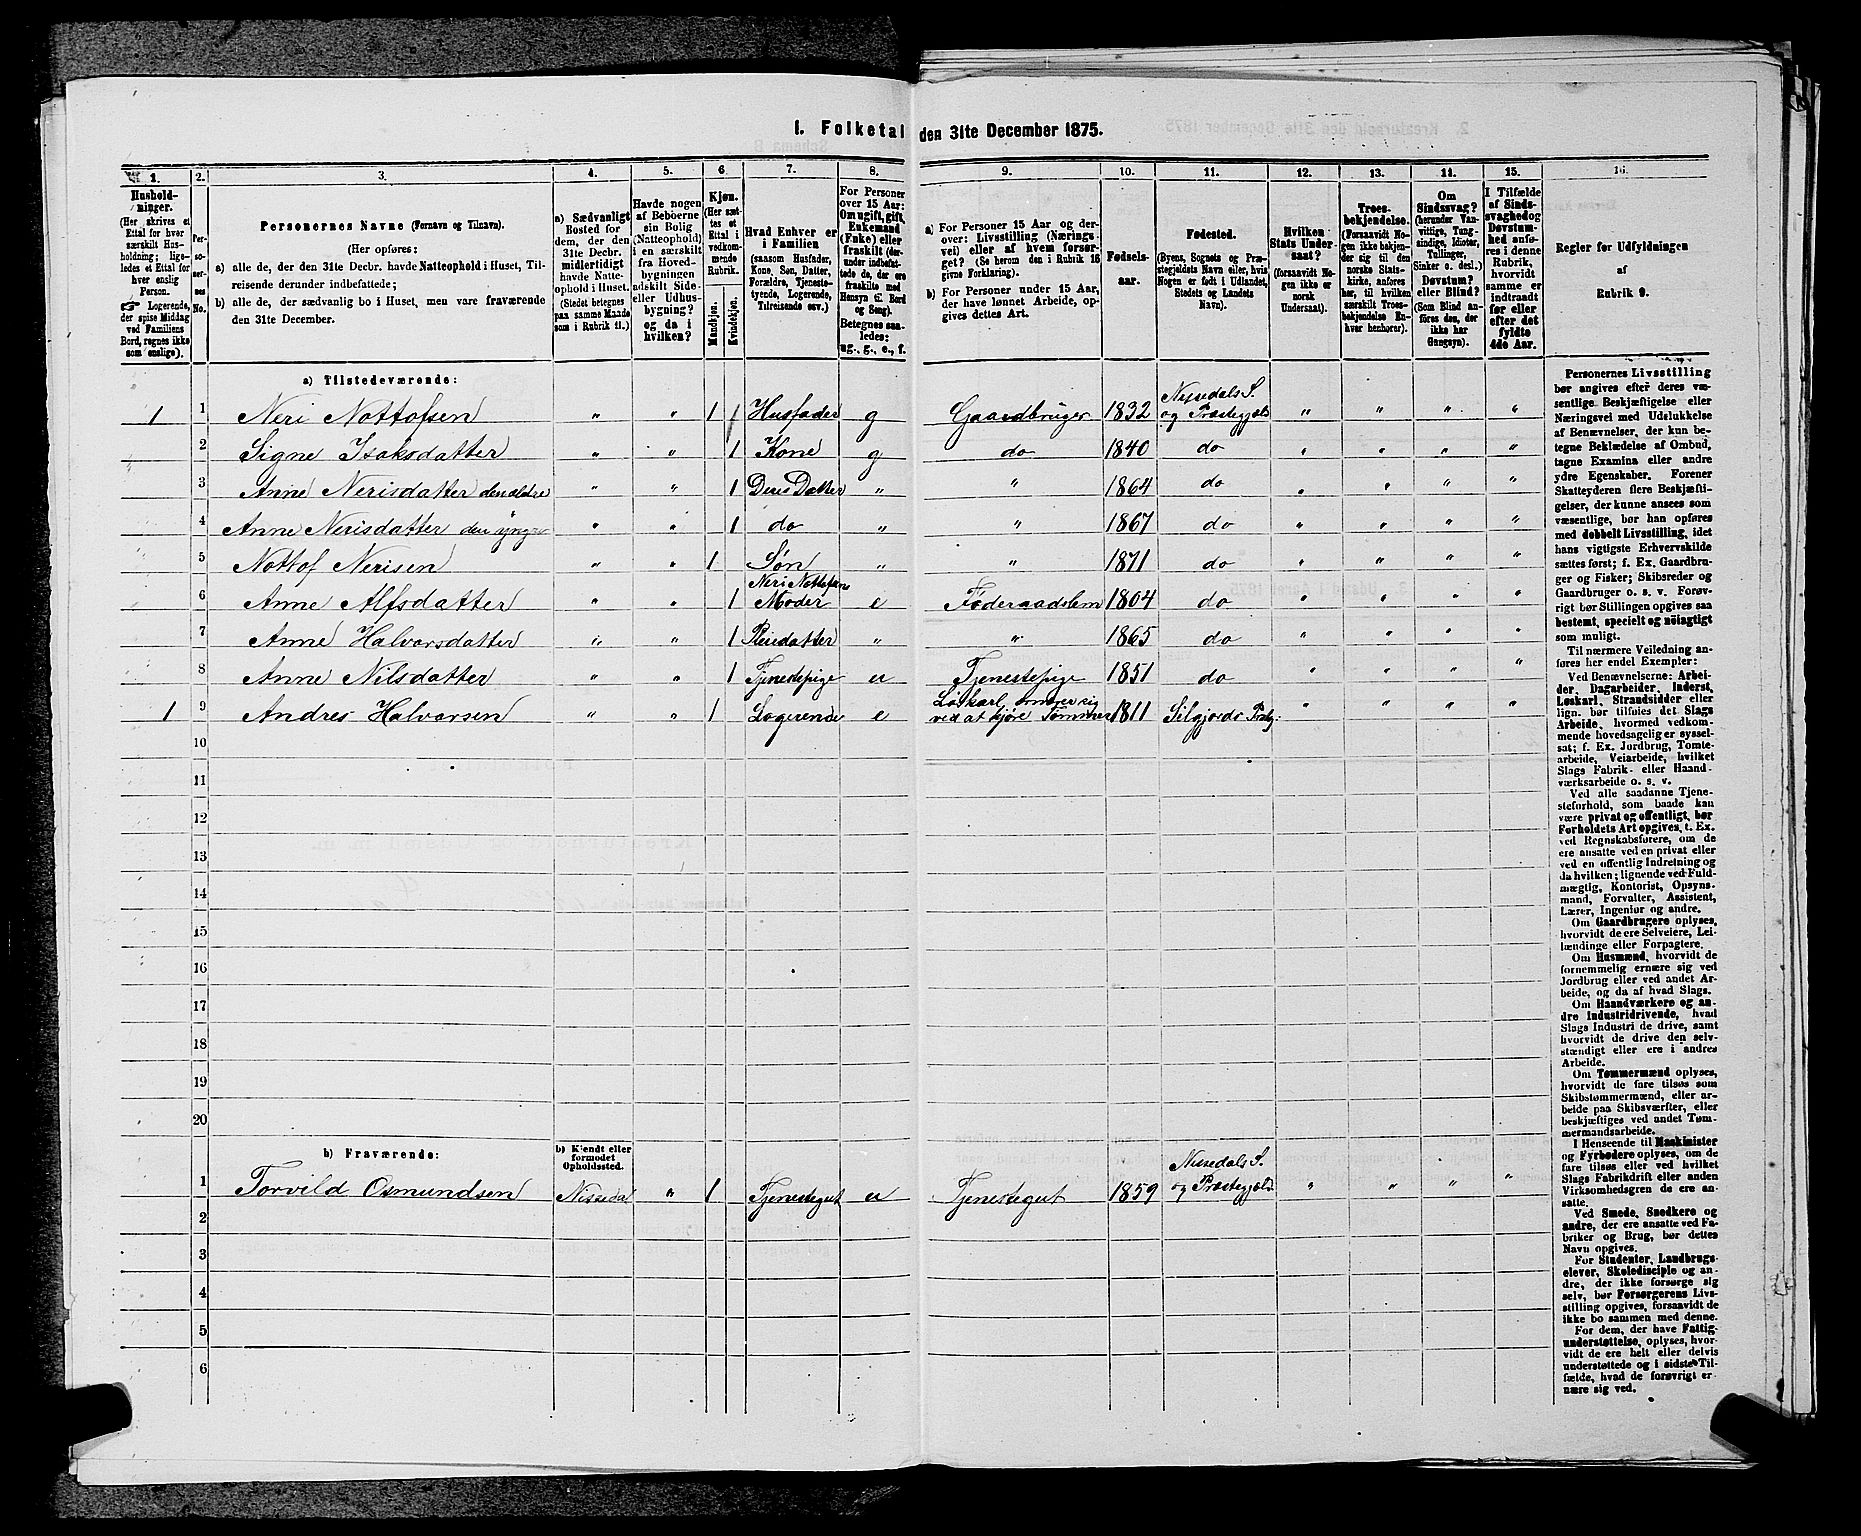 1. Folketal den 31te December 1875.
1. 2. 3. 4. 5. 6. 7. 8. 9. 10. 11. 12. 13. 14. 15. 16.
Husholdninger.
(Her skrives et
Ettal for hver
særskilt Husholdning;
ligeledes et Ettal for
hver enslig
Person.
☞ Logerende,
der spise Middag
ved Familiens
Bord, regnes ikke
som enslige).
Personernes No.
Personernes Navne (Fornavn og Tilnavn).
(Her opføres:
a) alle de, der den 31te Decbr. havde Natteophold i Huset, Tilreisende derunder indbefattede;
b) alle de, der sædvanlig bo i Huset, men vare fraværende
den 31te December.
a) Sædvanligt
Bosted for
dem, der den
31te Decbr.
midlertidigt
havde Natteophold
i Huset.
(Stedet betegnes
paa samme Maade
som i Rubrik 11.)
Havde nogen
af Beboerne
sin Bolig
(Natteophold)
i en særskilt
fra Hovedbygningen
adskilt Side-
eller Udhusbygning?
og da i
hvilken?
Kjøn.
(Her sættes
et
Ettal i
vedkommende
Rubrik.
Mandkjøn.
Kvindekjøn.
Hvad Enhver er
i Familien
(saasom Husfader,
Kone, Søn, Datter,
Forældre, Tjenestetyende,
Logerende,
Tilreisende osv.)
For Personer
over 15 Aar:
Om ugift, gift,
Enkemand
(Enke) eller
fraskilt (derunder
indbefattede
de, der ere
fraskilte med
Hensyn til Bord
og Seng).
Betegnes saaledes:
ug., g., e., f.
a) For Personer 15 Aar og derover:
Livsstilling (Næringsvei)
eller af hvem forsørget?
(Se herom den i Rubrik 16
givne Forklaring).
b) For Personer under 15 Aar,
der have lønnet Arbeide, opgives
dettes Art.
Fødselsaar.
Fødested.
(Byens, Sognets og Præstegjeldets
Navn eller, hvis
Nogen er født i Udlandet,
Stedets og Landets
Navn).
Hvilken
Stats Undersaat?
(forsaavidt Nogen
ikke er
norsk
Undersaat).
Troesbekjendelse.
(Forsaavidt Nogen
ikke bekjender
sig til den
norske Statskirke,
anføres
her, til hvilken
særskilt Troesbekjendelse
Enhver
henhører).
Om
Sindssvag?
(herunder Vanvittige,
Tungsindige,
Idioter,
Tullinger,
Sinker o. desl.)
Døvstum?
eller Blind?
(Som Blind anføres
den, der
ikke har
Gangsyn).
I Tilfælde
af Sindssvaghed
og
Døvstumhed
anføres
i denne
Rubrik,
hvorvidt
samme er
indtraadt
før eller
efter det
fyldte
4de Aar.
Regler for Udfyldningen
af
Rubrik 9.
a) Tilstedeværende:
1 1 Neri Nottofsen " " 1 Husfader g Gaardbruger 1832 Nissedals S. og Præstegjæld " " " "
2 Signe Isaksdatter " " 1 Kone g do 1840 do " " " "
3 Anne Nerisdatter den ældre " " 1 Deres Datter " " 1864 do " " " "
4 Anne Nerisdatter den yngre " " 1 do " " 1867 do " " " "
5 Nottof Nerisen " " 1 Søn " " 1871 do " " " "
6 Anne Alfsdatter " " 1 Neri Nottofsens Moder e Føderaadslem 1804 do " " " "
7 Anne Halvorsdatter " " 1 Pleiedatter " " 1865 do " " " "
8 Anne Nilsdatter " " 1 Tjenestepige u Tjenestepige 1851 do " " " "
1 9 Andres Halvorsen " " 1 Logerende e Løskarl, ernærer sig ved at kjøre Tømmer 1811 Silgjords Prstg: " " " "
10
11
12
13
14
15
16
17
18
19
20
b) Fraværende:
b) Kjendt eller
formodet
Opholdssted.
1 Torvild Osmundsen Nissedal " 1 Tjenestegut u Tjenestegut 1859 Nissedals S. og Præstegjæld " " " "
2
3
4
5
6
Personernes Livsstilling
bør angives efter deres væsentlige
Beskjæftigelse eller
Næringsvei med Udelukkelse
af Benævnelser, der kun betegne
Beklædelse af Ombud,
tagne Examina eller andre
ydre Egenskaber. Forener
Skatteyderen flere Beskjæftigelser,
der kunne ansees som
væsentlige, bør han opføres
med dobbelt Livsstilling, idet
hans vigtigste Erhvervskilde
sættes først; f. Ex. Gaardbruger
og Fisker; Skibsreder og
Gaardbruger o. s. v. Forøvrigt
bør Stillingen opgives saa
bestemt, specielt og nöiagtigt
som muligt.
Til nærmere Veiledning anføres
her endel Exempler:
Ved Benævnelserne: Arbeider,
Dagarbeider, Inderst,
Løskarl, Strandsidder eller
lign. bør tilføies det Slags
Arbeide, hvormed vedkommende
hovedsagelig er sysselsat;
f. Ex. Jordbrug, Tomtearbeide,
Veiarbeide, hvilket
Slags Fabrik- eller Haandværksarbeide
o. s. v.
Ved alle saadanne Tjenesteforhold,
som baade kan
være privat og offentligt, bør
Forholdets Art opgives, t. Ex.
ved Regnskabsførere, om de
ere ansatte ved en privat eller
ved en offentlig Indretning og
da hvilken; lignende ved Fuldmægtig,
Kontorist, Opsynsmand,
Forvalter, Assistent,
Lærer, Ingeniør og andre.
Om Gaardbrugere oplyses,
hvorvidt de ere Selveiere, Leilændinge
eller Forpagtere.
Om Husmænd, hvorvidt de
fornemmelig ernære sig ved
Jordbrug eller ved andet Arbeide,
og da af hvad Slags.
Om Haandværkere og andre
Industridrivende, hvad
Slags Industri de drive, samt
hvorvidt de drive den selvstændigt
eller ere i andres
Arbeide.
Om Tømmermænd oplyses,
hvorvidt de fare tilsøs som
Skibstømmermænd, eller arbeide
paa Skibsværfter, eller
beskjæftiges ved andet Tømmermandsarbeide.
I Henseende til Maskinister
og Fyrbødere oplyses, om de
fare tilsøs eller ved hvilket
Slags Fabrikdrift eller anden
Virksomhedgren de ere ansatte.
Ved Smede, Snedkere og
andre, der ere ansatte ved Fabriker
og Brug, bør dettes
Navn opgives.
For Studenter, Landbrugselever,
Skoledisciple og andre,
der ikke forsørge sig
selv, bør Forsørgerens Livsstilling
opgives, forsaavidt de
ikke bo sammen med denne.
For dem, der have Fattigunderstøttelse,
oplyses, hvorvidt
de ere helt eller delvis
understøttede og i sidste Tilfælde,
hvad de forøvrigt ernære
sig ved.